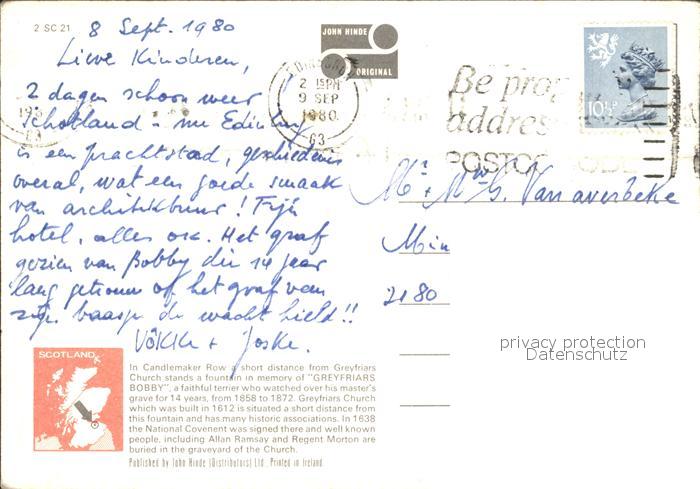 2 SC 21
8 Sept. 1980
Lieve Kinderen,
2 dagen schoon weer
Schotland - nu Edinburg
is een prachtstad, geschiedenis
overal, wat een goede smaak
van architektuur! Fijn
hotel, alles ok. Het graf
gezien van Bobby die 14 jaar
lang getrouw op het graf van
zijn baasje de wacht hield!!
+ Joske.
JOHN HINDE
ORIGINAL
EDINBURGH
2 15PM
9 SEP
1980
63
Be prop
addres
POSTCODE
10½P
Mr + Mw G. Van averbeke
2180
privacy protection
Datenschutz
SCOTLAND
In Candlemaker Row a short distance from Greyfriars
Church stands a fountain in memory of "GREYFRIARS
BOBBY", a faithful terrier who watched over his master's
grave for 14 years, from 1858 to 1872. Greyfriars Church
which was built in 1612 is situated a short distance from
this fountain and has many historic associations. In 1638
the National Covenent was signed there and well known
people, including Allan Ramsay and Regent Morton are
buried in the graveyard of the Church.
Published by John Hinde (Distributors) Ltd. Printed in Ireland